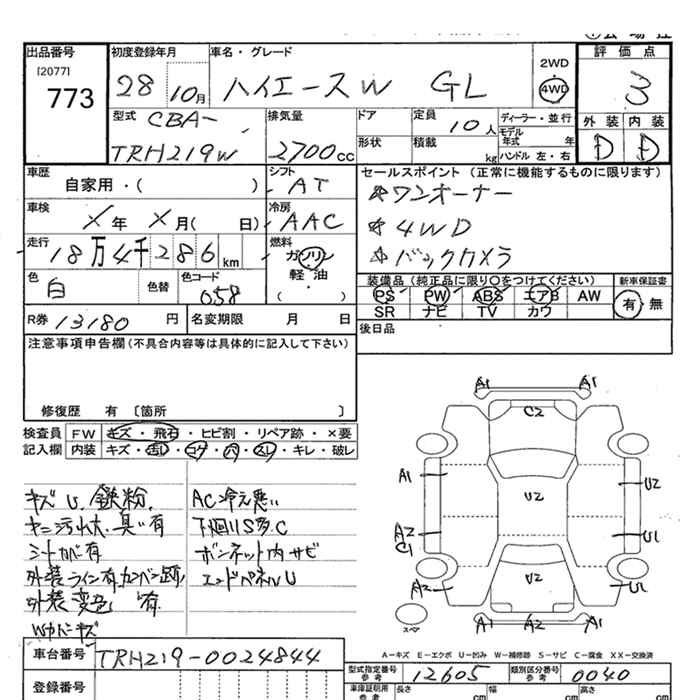 出品番号
[2077]
773
初度登録年月
28 10月
車名・グレード
ハイエースW GL
2WD
4WD
評価点
3
外装 内装
D D
型式
CBA-
TRH219W
排気量
2700cc
ドア
形状
定員
10人
積載
kg
ディーラー・並行
モデル年式 年
ハンドル 左・右
車歴
自家用・( )
シフト
AT
車検
X年 X月( 日)
冷房
AAC
走行
18万4千286km
燃料
ガソリン
軽油
( ・ )
色
白
色替
色コード
058
R券 13180円
名変期限 月 日
セールスポイント(正常に機能するものに限ります)
☆ワンオーナー
☆4WD
☆バックカメラ
装備品(純正品に限り○をつけてください)
新車保証書
PS PW ABS エアB AW
SR ナビ TV カワ
有 無
後日品
注意事項申告欄(不具合内容等は具体的に記入して下さい)
修復歴 有 〔箇所 〕
検査員記入欄
FW キズ・飛石・ヒビ割・リペア跡・×要
内装 キズ・汚レ・コゲ・穴・スレ・キレ・破レ
キズU.鉄粉.
ヤニ汚れ大.臭い有
シートカバー有
外装変色有
Wカバーキズ
AC冷え悪い
下廻りS多.C
ボンネット内サビ
エンドパネルU
A1 A1
C2
A1
U2
U2
A2
C1
U1
U2
U1
A1 A2 A1
スペア
A-キズ E-エクボ U-凹み W-補修跡 S-サビ C-腐食 XX-交換済
車台番号 TRH219-0024844
登録番号
型式指定番号
参考
12605
類別区分番号
参考
0040
車庫証明用
参考
長さ cm
幅 cm
高さ cm